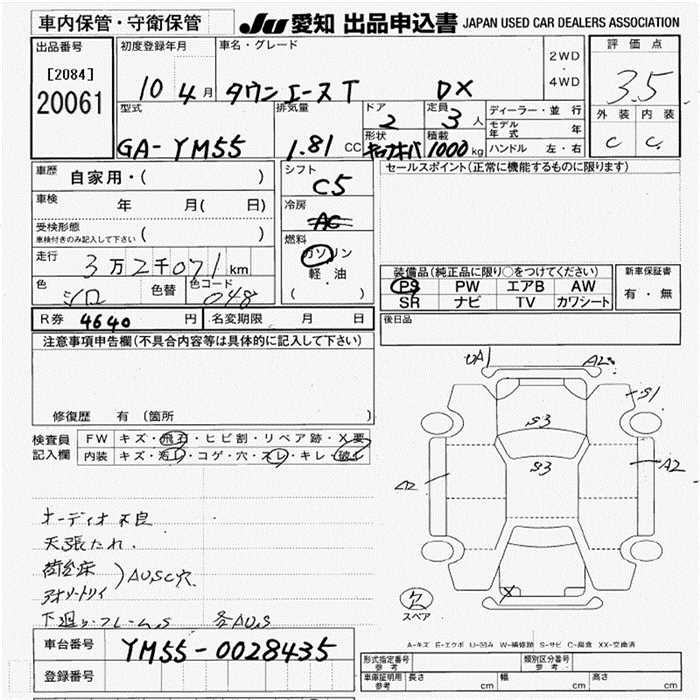 車内保管・守衛保管
JU 愛知 出品申込書 JAPAN USED CAR DEALERS ASSOCIATION
出品番号
[2084]
20061
初度登録年月
10 4月
車名・グレード
タウンエースT DX
2WD
・
4WD
評価点
3.5
外装 内装
C C
型式
GA-YM55
排気量
1.81 CC
ドア
2
定員
3人
形状
積載
1000kg
ディーラー・並 行
モデル年式 年
ハンドル 左・右
車歴
自家用・( )
車検
年 月( 日)
受検形態
車検付きのみ記入して下さい ( )
走行
3万2千071km
色
シロ
色替
色コード
048
シフト
C5
冷房
AC
燃料
ガソリン
軽 油
( )
R券 4640 円
名変期限 月 日
セールスポイント(正常に機能するものに限ります)
装備品(純正品に限り○をつけてください)
PS PW エアB AW
SR ナビ TV カワシート
新車保証書
有・無
後日品
注意事項申告欄(不具合内容等は具体的に記入して下さい)
修復歴 有 (箇所 )
検査員
記入欄
FW キズ・飛石・ヒビ割・リペア跡・X要
内装 キズ・汚レ・コゲ・穴・スレ・キレ・破レ
オーディオ不良
天張たれ.
荷台床
AUSC穴
下廻り・フレームS 各AUS
UA1
A2
S1
S3
S3
A2
A2
X
欠
スペア
A-キズ E-エクボ U-凹み W-補修跡 S-サビ C-腐食 XX-交換済
車台番号
YM55-0028435
登録番号
形式指定番号
参考
類別区分番号
参考
車庫証明用
参考
長さ cm 幅 cm 高さ cm